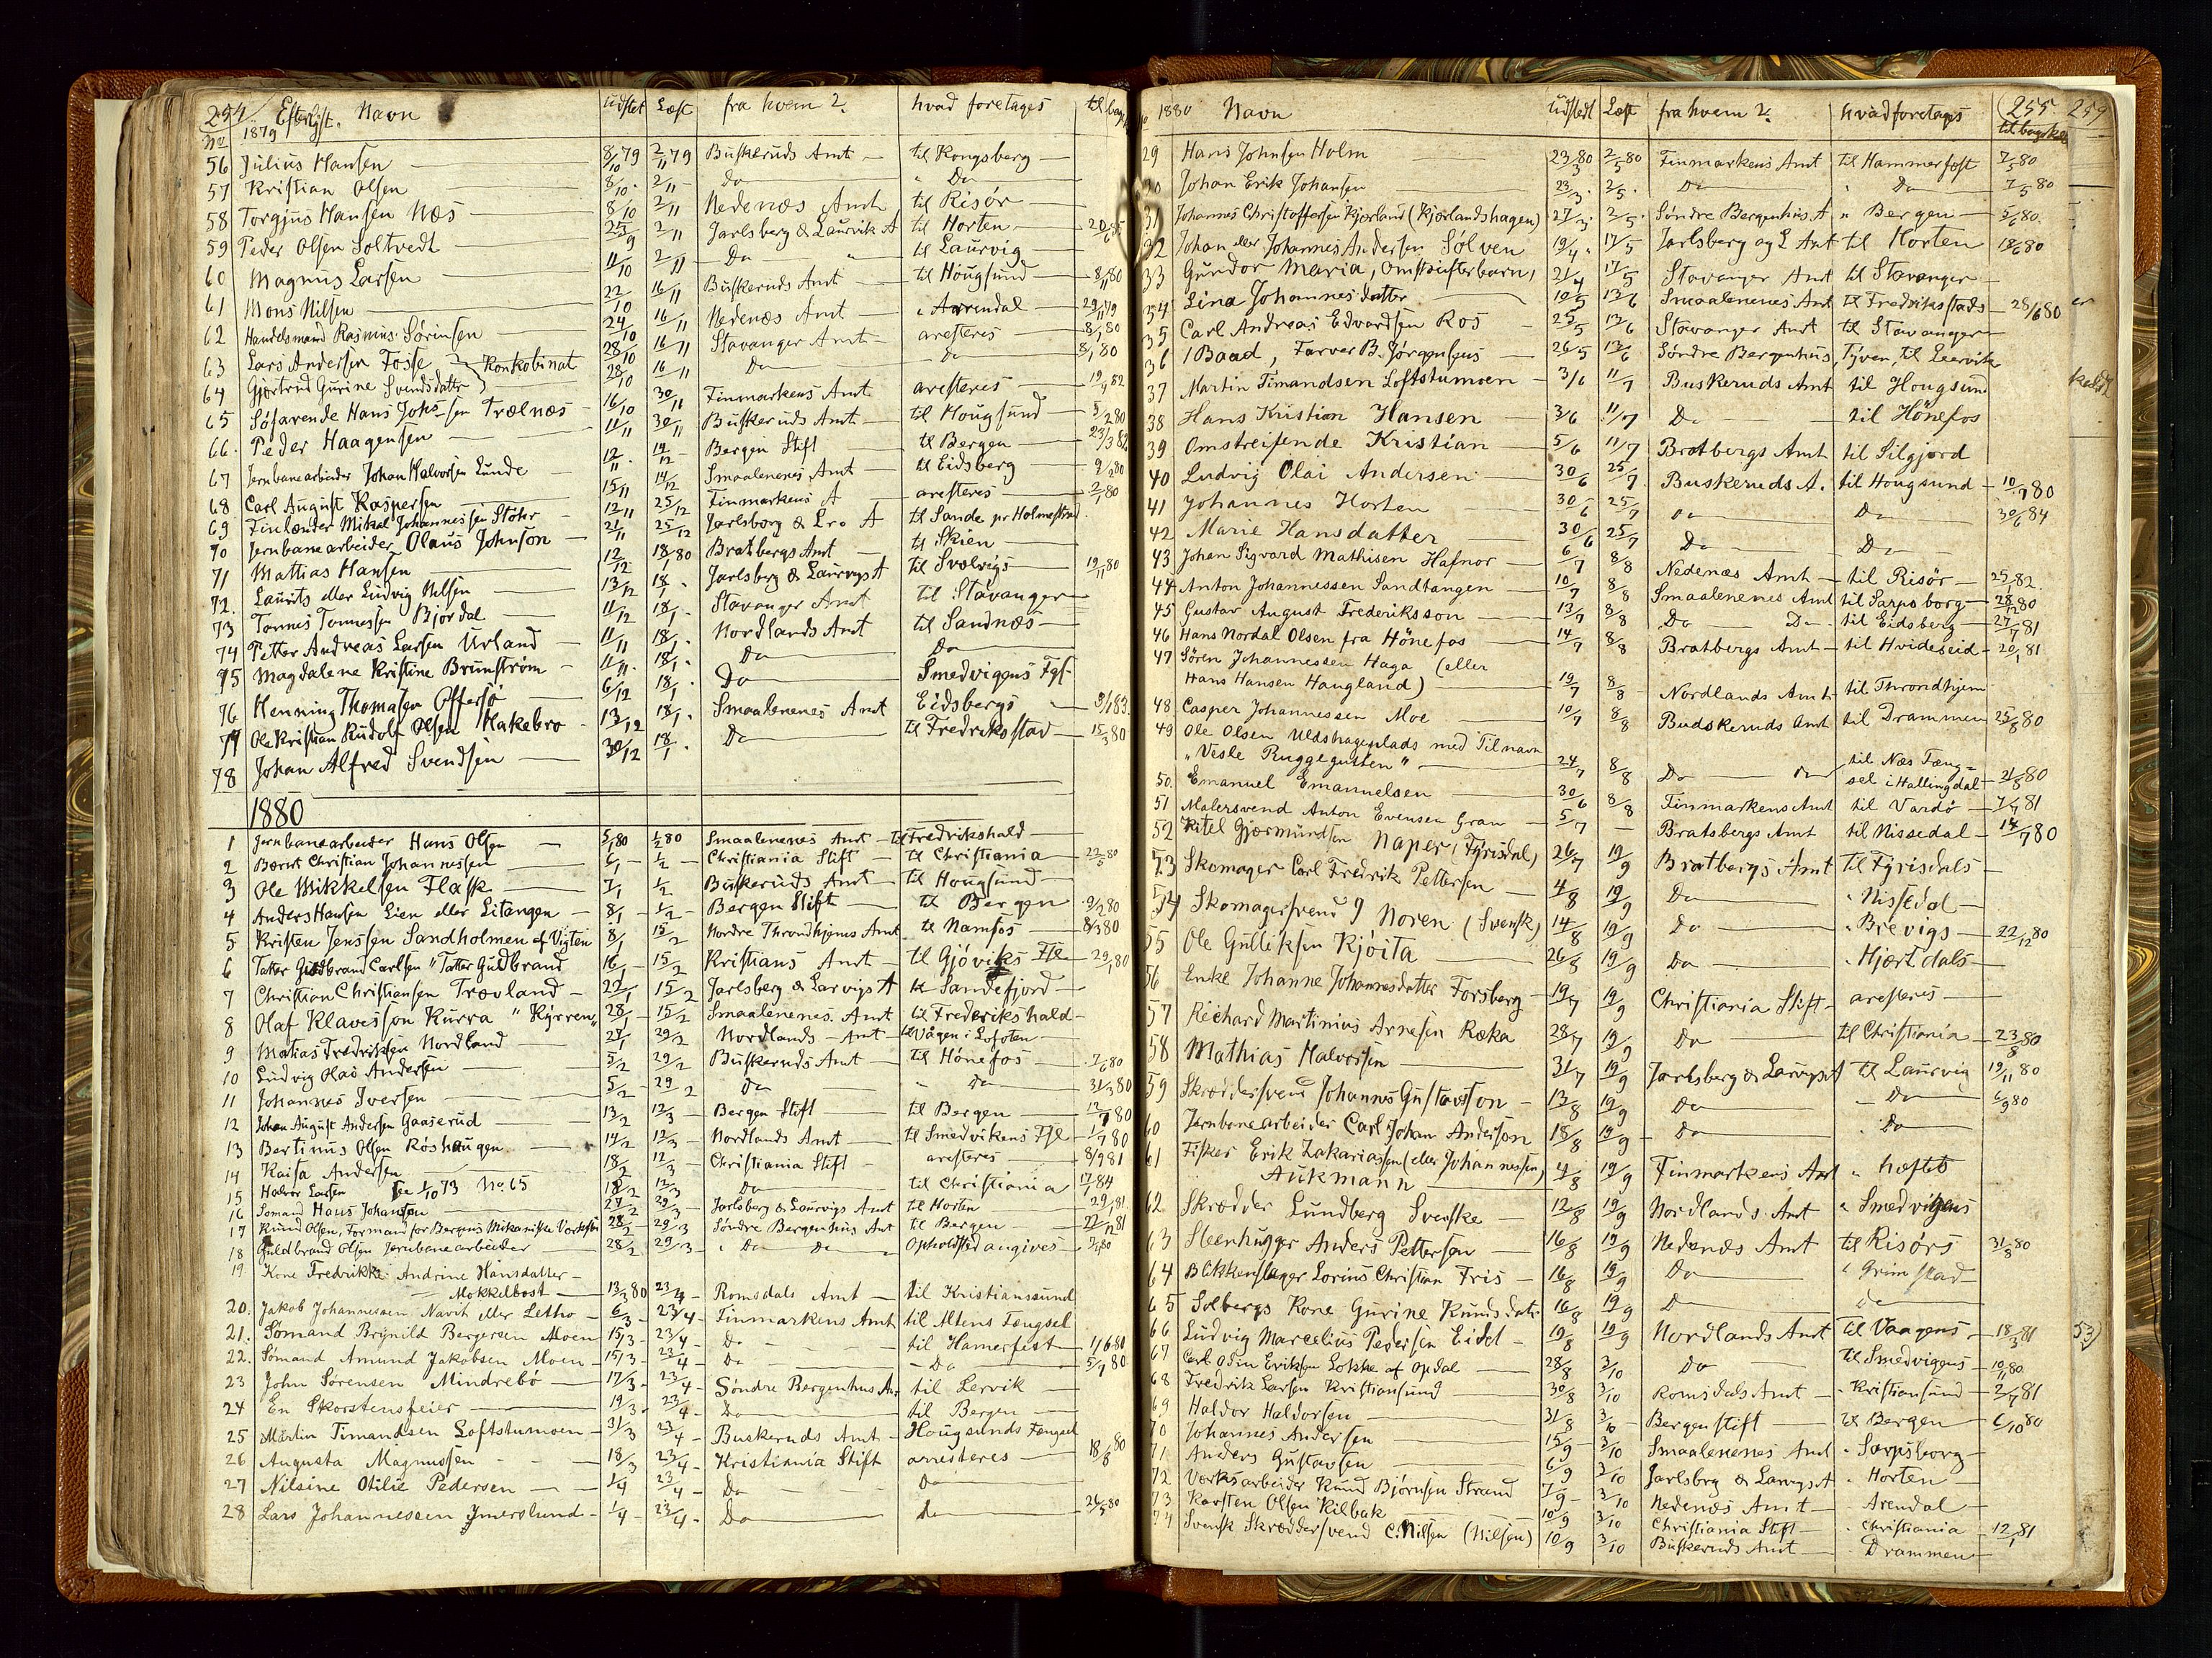 254 Efterlyst. Navn Udstet Læst fra hvem? hvad foretages tilbage
No 1879
56 Julius Hansen 8/10 79 2/11 79 Buskeruds Amt til Kongsberg
57 Kristian Olsen 8/10 2/11 Do " Do
58 Torgjus Hansen Næs 8/10 2/11 Nedenæs Amt til Risör
59 Peder Olsen Soltvedt 25/9 2/11 Jarlsberg & Laurvik A til Horten
60 Magnus Larsen 11/10 2/11 Do til Laurvig
61 Mons Nilsen 22/10 16/11 Buskeruds Amt til Hougsund 8/11 80
62 Handelsmand Rasmus Sörensen 24/10 16/11 Nedenæs Amt " Arendal 29/11 79
63 Lars Andersen Fosse } Konkobinat 28/10 16/11 Stavanger Amt aresteres 8/1 80
64 Gjertrud Gurine Svendsdatter 28/10 16/11 Do Do 8/1 80
65 Söfarende Hans Johs-sen Trælnæs 16/10 30/11 Finmarkens Amt aresteres 19/9 82
66. Peder Haagensen 11/11 30/11 Buskeruds Amt til Hougsund 3/2 80
67 Jernbanearbeider Johan Halvorsen Lunde 12/11 14/12 Bergen Stift til Bergen 23/3 82
68 Carl August Kaspersen 15/11 14/12 Smaalenenes Amt til Eidsberg 9/2 80
69 Finlænder Mikal Johannessen Stöhr 12/11 25/12 Finmarkens A aresteres 2/1 80
70 Jernbanearbeider Olaus Johnson 21/11 25/12 Jarlsborg & Lr. A til Sande pr Holmestrand
71 Mathias Hansen 12/12 18/1 80 Bratbergs Amt til Skien
72. Laurits eller Ludvig Nilsen 13/12 18/1 Jarlsberg & Laurvigs A til Svelvigs 19/11 80
73 Tönnes Tönnessen Bjordal 11/12 18/1 Stavanger Amt til Stavanger
74 Petter Andreas Larsen Urland 11/11 18/1 Nordlands Amt til Sandnæs
75 Magdalene Kristine Brunström 11/11 18/1 Do Do
76 Henning Thomasen Offersö 6/12 18/1 Do Smedvigens Fgsl
77 Ole Kristian Rudolf Olsen Hakebro 13/12 18/1 Smaalenenes Amt Eidsbergs
78 Johan Alfred Svendsen 30/12 18/1 Do til Fredriksstad 15/3 80
1880
1 Jernbanearbeider Hans Olsen 5/1 80 1/2 80 Smaalenenes Amt til Fredrikshald
2 Bernt Christian Johannessen 6/1 1/2 Christiania Stift til Christiania 22/5 80
3 Ole Mikkelsen Flask 7/1 1/2 Buskeruds Amt til Hougsund
4 Anders Hansen Lien eller Litangen 8/1 1/2 Bergen Stift til Bergen 9/2 80
5 Kristen Jenssen Sandholmen af Vigten 8/1 15/2 Nordre Throndhjems Amt til Namsos 8/3 80
6 Tatter Gudbrand Carlsen "Tatter Gudbrand 16/1 15/2 Kristians Amt til Gjöviks Fgl 29/1 80
7 Christian Christiansen Trovland 22/1 15/2 Jarlsberg & Larvigs A til Sandefjord
8 Olaf Klavesson Kurra "Kyrren" 28/1 15/2 Smaalenenes. Amt til Frederikshald
9 Matias Fredriksen Nordland 28/1 29/2 Nordlands Amt til Vågen i Lofoten
10 Ludvig Olaö Andersen 5/2 29/2 Buskeruds Amt til Hönefos 2/6 80
11 Johannes Iversen 5/2 29/2 Do " Do 31/3 80
12 Johan August Andersen Gaaserud 13/2 12/3 Bergen Stift til Bergen 12/7 80
13 Bertinus Olsen Röshaugen 14/2 12/3 Nordlands Amt til Smedvikens Fgl 1/7 80
14 Kaisa Andersen 18/2 12/3 Christiania Stift aresteres 8/9 81
15 Halvor Larsen Se 1/10 73 No. 65 18/2 12/3 Do til Christiania 17/1 84
16 Sömand Hans Johansen 27/2 29/3 Jarlsberg & Laurvigs Amt til Horten 29/1 81
17 Knud Olsen, Formand for Bergens Mikaniske Værksted 28/2 29/3 Söndre Bergenhus Amt til Bergen 22/12 81
18 Guldbrand Olsen Jernbanearbeider 28/2 29/3 " Do Do Opholdsted angives
19. Kone Fredrikke Andrine Hansdatter
Mokkelbost 13/3 80 23/4 Romsdals Amt til Kristianssund
20. Jakob Johannessen Navit eller Letho 6/3 23/4 Finmarkens Amt til Altens Fængsel
21. Sömand Brynild Bergersen Moen 15/3 23/4 Do til Hamerfest 1/6 80
22. Sömand Amund Jakobsen Moen 15/3 23/4 Do Do 5/7 80
23 John Sörensen Mindrebö 17/3 23/4 Söndre Bergenhus Amt til Lervik
24 En Skorstensfeier 19/3 23/4 Do til Bergen
25 Martin Timandsen Loftstumoen 31/3 23/4 Buskeruds Amt Hougsunds Fængsel
26 Augusta Magnussen 18/3 23/4 Kristiania Stift arresteres 18/8 80
27 Nilsine Otilie Pedersen 1/4 23/4 Do Do
28 Lars Johannessen Ymerslund 1/4 23/4 Do Do 26/5 80
1880 Navn Udstedt Læst fra hvem? hvad foretages 255 tilbagekaldt
259
29 Hans Johnsen Holm 23/3 80 2/5 80 Finmarkens Amt til Hammerfest 7/5 80
30 Johan Erik Johansen 23/3 2/5 Do " Do 7/5 80
31 Johannes Christoffersen Kjorland (Kjorlandshagen) 27/3 2/5 Söndre Bergenhus. A " Bergen 5/6 80
32 Johan eller Johannes Andersen Sölven 19/4 17/5 Jarlsberg og L Amt til Horten 18/6 80
33 Gundor Maria, Omstreifterbarn, 21/4 17/5 Stavanger Amt til Stavanger
34 Lina Johannesdatter 10/5 13/6 Smaalenenes Amt til Fredriksstads 28/6 80
35 Carl Andreas Edvardsen Ros 25/5 13/6 Stavanger Amt til Stavanger
36 1 Baad, Farver B. Jörgensens 26/5 13/6 Söndre Bergenhus, Tyven, til Leervik
37 Martin Timandsen Loftstumoen 3/6 11/7 Buskeruds Amt til Hougsund
38 Hans Kristian Hansen 3/6 11/7 Do til Hönefos
39 Omstreifende Kristian 5/6 11/7 Bratbergs Amt til Silgjord
40 Ludvig Olai Andersen 30/6 25/7 Buskeruds A. til Hougsund 10/7 80
41 Johannes Horten 30/6 25/7 Do Do 30/6 84
42 Marie Hansdatter 30/6 25/7 Do Do
43 Johan Sigvard Mathisen Hafnor 6/7 8/8 Nedenæs Amt til Risör 25/1 82
44 Anton Johannessen Sandtangen 10/7 8/8 Smaalenenes Amt til Sarpsborg 28/12 80
45 Gustav August Frederiksson 13/7 8/8 Do Do til Eidsberg 27/7 81
46 Hans Nordal Olsen fra Hönefos 14/7 8/8 Bratbergs Amt til Hvideseid 20/1 81
47 Sören Johannessen Haga (eller
Hans Hansen Haugland) 19/7 8/8 Nordlands Amt til Throndhjem
48 Casper Johannessen Moe 10/7 8/8 Budskeruds Amt til Drammen 25/8 80
49 Ole Olsen Uldshagenplads med Tilnavn
"Vesle Ruggegutten" 24/7 8/8 Do Do til Næs Fæng=
sel i Hallingdal 21/8 80
50. Emanuel Emanuelsen 30/6 8/8 Finmarkens Amt til Vardö 7/7 81
51 Malersvend Anton Evensen Gran 5/7 — Bratsbergs Amt til Nissedal 14/7 80
52 Kitel Gjermundsen Naper (Fyrisdal) 26/7 19/9 Bratbergs Amt til Fyrisdals
53 Skomager Carl Fredrik Pettersen 4/8 19/9 Do " Nissedal
54 Skomagersvend J Noren (Svensk) 14/8 19/9 Do " Brevigs 22/12 80
55 Ole Gulliksen Kjöita 26/8 19/9 Do " Hjertdals
56 Enke Johanne Johannesdatter Forsberg 19/7 19/9 Christiania Stift aresteres
57 Richard Martinius Arnesen Ræka 28/7 19/9 Do til Christiania 23/8 80
58 Mathias Halvorsen 31/7 19/9 Jarlsberg & Larvigs A til Laurvig 19/11 80
59 Skræddersvend Johannes Gustavsson 13/8 19/9 Do Do 6/9 80
60 Jernbanearbeider Carl Johan Anderson 18/8 19/9 Do Do
61 Fisker Erik Zakariassen (eller Johannessen)
Aukmann 4/8 19/9 Finmarkens Amt " hæftes
62 Skrædder Lundberg Svenske 12/8 19/9 Nordlands Amt " Smedvigens
63 Steenhugger Anders Pettersen 16/8 19/9 Nedenæs Amt til Risörs 31/8 80
64 Blikkenslager Lorins Christian Fris 16/8 19/9 Do " Grimstad
65 Solbergs Kone Gurine Knudsdatr 16/8 19/9 Do Do
66 Ludvig Marcelius Pedersen Eidet 19/8 19/9 Nordlands Amt til Vaagens 18/3 81
67 Carl Odin Eriksen Lökke af Opdal 28/8 3/10 Do til Smedvigens
68 Fredrik Larsen Kristiansund 30/8 3/10 Romsdals Amt " Kristiansund 2/7 81
69 Haldor Haldorsen 31/8 3/10 Bergenstift til Bergen 6/10 80
70 Johannes Andersen 15/9 3/10 Smaalenenes Amt " Sarpsborg
71 Anders Gustavsen 6/9 3/10 Jarlsbrg & Larvigs A " Horten
72 Værksarbeider Knud Björnsen Strand 7/9 3/10 Nedenæs Amt " Arendal
73 Karsten Olsen Kilbak 10/9 3/10 Christiania Stift " Christiania 12/1 81
74 Svensk Skræddersvend C. Nilsen (Nilsen) 10/9 3/10 Buskeruds Amt " Drammen